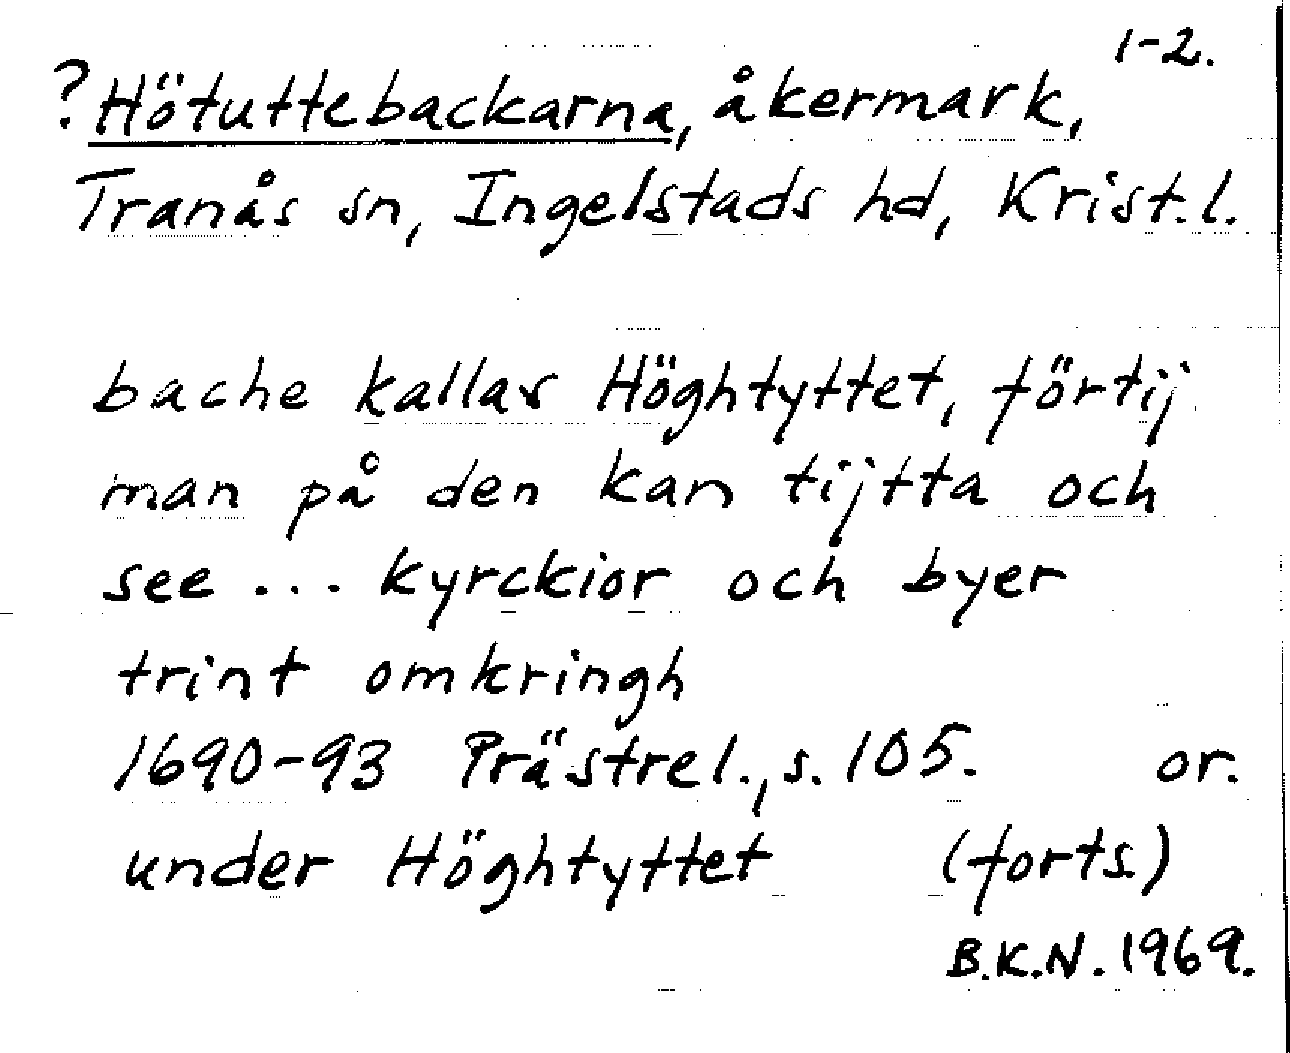 1-2.
? Hötuttebackarna, åkermark,
Tranås sn, Ingelstads hd, Krist. l.
bache kallas Höghtyttet, förtij
man på den kan tijtta och
see ... kyrckior och byer
trint omkringh
1690-93 Prästrel., s. 105. or.
under Höghtyttet (forts.)
B.K.N. 1969.